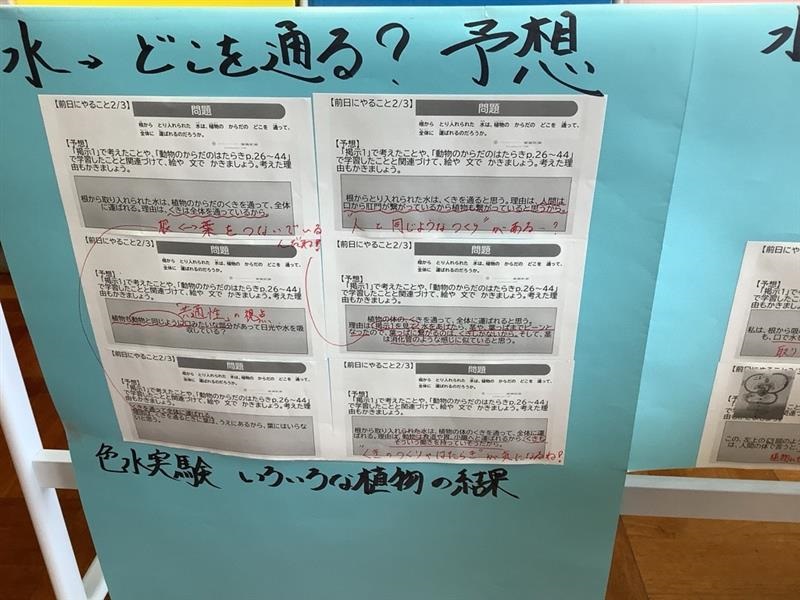 水→どこを通る? 予想
【前日にやること2/3】
問題
根から とり入れられた 水は、植物の からだの どこを 通って、
全体に 運ばれるのだろうか。
【予想】
「掲示1」で考えたことや、「動物のからだのはたらきp.26～44」
で学習したことと関連づけて、絵や 文で かきましょう。考えた理
由もかきましょう。
根から取り入れられた水は、植物のからだのくきを通って、全体
に運ばれる。理由は、くきは全体を通っているから。
根⇔葉をつないでいる
んだね!
【前日にやること2/3】
問題
根から とり入れられた 水は、植物の からだの どこを 通って、
全体に 運ばれるのだろうか。
【予想】
「掲示1」で考えたことや、「動物のからだのはたらきp.26～44」
で学習したことと関連づけて、絵や 文で かきましょう。考えた理
由もかきましょう。
根からとり入れられた水は、くきを通ると思う。理由は、人間は
口から肛門が繋がっているから植物も繋がっていると思うから。
"人と同じようなつくり"がある…?
【前日にやること2/3】
問題
根から とり入れられた 水は、植物の からだの どこを 通って、
全体に 運ばれるのだろうか。
【予想】
「掲示1」で考えたことや、「動物のからだのはたらきp.26～44」
で学習したことと関連づけて、絵や 文で かきましょう。考えた理
由もかきましょう。
"共通性"の視点
植物も動物と同じように口みたいな部分があって日光や水を吸
収している?
【前日にやること2/3】
問題
根から とり入れられた 水は、植物の からだの どこを 通って、
全体に 運ばれるのだろうか。
【予想】
「掲示1」で考えたことや、「動物のからだのはたらきp.26～44」
で学習したことと関連づけて、絵や 文で かきましょう。考えた理
由もかきましょう。
植物の体の くきを通って、全体に運ばれると思う。
理由は「掲示1」を見て、水をあげたら、茎や、葉っぱまでピーンと
なったので、葉っぱに繋がるのは、くきしかないから。そして、茎
は消化管のような感じに似ていると思う。
【前日にやること2/3】
問題
根から とり入れられた 水は、植物の からだの どこを 通って、
全体に 運ばれるのだろうか。
【予想】
「掲示1」で考えたことや、「動物のからだのはたらきp.26～44」
で学習したことと関連づけて、絵や 文で かきましょう。考えた理
由もかきましょう。
を通って全体に運ばれる。
【前日にやること2/3】
問題
根から とり入れられた 水は、植物の からだの どこを 通って、
全体に 運ばれるのだろうか。
【予想】
「掲示1」で考えたことや、「動物のからだのはたらきp.26～44」
で学習したことと関連づけて、絵や 文で かきましょう。考えた理
由もかきましょう。
根から取り入れられた水は、植物の体のくきを通って、全体に運
ばれる。理由は、動物は食道や胃、小腸へと運ばれるから、くきも
そういう働きを持っていそうだから。
"くきのつくりやはたらき"が気になるね!
色水実験 いろいろな植物の結果
水
【前日に
【予想】
「掲示1」
で学習し
由もかき
私は、根
も、口で水を
取り
この、左上の口
は、人間の体で言うと、